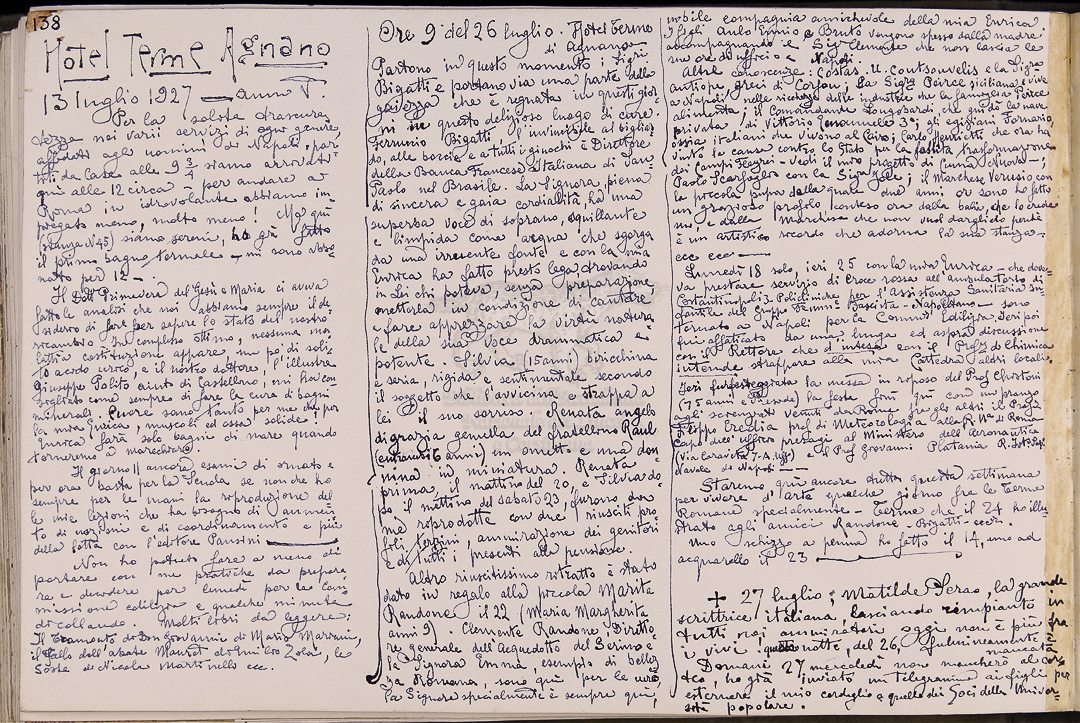 138
Hotel Terme Agnano
13 luglio 1927 — anno V.
Per la solita trascura-
tezza nei varii servizi di ogni genere,
affidati agli uomini di Napoli, par-
titi da Casa alle 9 3/4 siamo arrivati
qui alle 12 circa — per andare a
Roma in idrovolante abbiamo im-
piegato meno, molto meno! Ma qui
(stanza N 45) siamo sereni, ho già fatto
il primo bagno termale — mi sono abbo-
nato per 12 —.
Il Dott Primavera del Gesù e Maria ci aveva
fatto le analisi che noi abbiamo sempre il de-
siderio di fare per sapere lo stato del nostro
ricambio. In complesso ottimo, nessuna ma-
lattia costituzione appare, un po' di soli-
to acido urico, e il nostro dottore, l'illustre
Giuseppe Polito aiuto di Castellino, mi ha con-
sigliato come sempre di fare la cura di bagni
minerali. Cuore sano tanto per me che per
la mia Enrica, muscoli ed ossa solide.
Enrica farà solo bagni di mare quando
torneremo a
Il giorno 11 ancora esami di ornato e
per ora basta per la Scuola se non che ho
sempre per le mani la riproduzione del
le mie lezioni che ha bisogno di aumen-
to di nozioni e di coordinamento e più
della lotta con l'editore Pansini
Non ho potuto fare a meno di
portare con me pratiche da prepara-
re e decidere per lunedì per la Com-
missione edilizia e qualche minuta
di collaudo. Molti libri da leggere:
Il Tramonto di Don Giovanni di Mario Mariani,
il fallo dell'abate Mouret di Emilio Zola, le
Soste di Nicola Martinelli ecc.
Ore 9 del 26 luglio. Hotel Terme
di Agnano
Partono in questo momento i Sigri
Bigatti e portano via una parte della
gaiezza che è regnata in questi gior-
ni in questo delizioso luogo di cure.
Ferruccio Bigatti l'invincibile al bigliar-
do, alle boccie e a tutti i giuochi è Direttore
della Banca Francese Italiana di San
Paolo nel Brasile. La Signora, piena
di sincera e gaia cordialità, ha una
superba voce di soprano, squillante
e limpida come acqua che sgorga
da una irresente fonte! e con la mia
Enrica ha fatto presto lega trovando
in Lei chi poteva, senza preparazione
metterla in condizione di cantare
e fare apprezzare la virtù natura-
le della sua voce drammatica e
potente. Silvia (15 anni) birichina
e seria, rigida e sentimentale secondo
il soggetto che l'avvicina, strappa a
lei il suo sorriso. Renata angelo
di grazia gemella del fratellino Raul
(entrambi 6 anni) un ometto e una don
nina in miniatura. Renata
prima, il mattino del 20, e Silvia do
po il mattino del sabato 23, furono da
me riprodotte con due, riusciti pro
fili, terzini, ammirazione dei genitori
e di tutti i presenti alla pensione.
Altro riuscitissimo ritratto è stato
dato in regalo alla piccola Marita
Randone il 22 (Maria Margherita
anni 9). Clemente Randone, Diretto
re generale dell'Acquedotto del Serino e
la Signora Emma, esempio di bellez
za Romana, sono qui per le cure
La Signora specialmente è sempre qui,
nobile compagnia amichevole della mia Enrica
I figli Aulo Ennio e Bruto vengono spesso dalla madre
accompagnando il Sig Clemente che non lascia le
sue ore d'ufficio a Napoli.
Altre conoscenze: Costas. U. Coutsouvelis e la Sigra
Antiope, greci di Corfou, la Sigra Peirce siciliana, e vive
a Napoli nelle ricchezze delle industrie che la famiglia Peirce
alimenta; il Comandante Longobardi che guida la nave
privata, di Vittorio Emanuele 3°; gli egiziani Fornario,
ossia italiani che vivono al Cairo; Carlo che ora ha
vinto la causa contro lo Stato per la fallita trasformazione
dei Campi Flegrei — vedi il mio progetto di Cuma Nuova —;
Paolo Scarfoglio con la Sigra; il Marchese Venusio con
la piccola pupa della quale due anni or sono ho fatto
un grazioso profilo conteso ora dalla balia, che lo crede
suo, e dalla Marchesa che non vuol darglielo perché
è un artistico ricordo che adorna la sua stanza —
ecc ecc —
Lunedì 18 solo, ieri 25 con la mia Enrica — che dove-
va prestare servizio di Croce rossa all'ambulatorio di
Costantinopoli 3 Policliniche per l'Assistenza Sanitaria In-
fantile del Gruppo Femm. Fascista Napoletano — sono
tornato a Napoli per la Commis Edilizia. Ieri poi
fui affaticato da una lunga ed aspra discussione
con il Rettore che d'intesa con il Prof di Chimica
intende strappare alla mia Cattedra altri locali.
Ieri fu festeggiata la messa in riposo del Prof Chistoni
(75 anni e Preside) la festa finì qui con un pranzo
agli scienziati venuti da Roma fra gli altri il Prof
Filippo Eredia prof di Meteorologia alla R. Uta di Roma
Capo dell'ufficio presagi al Ministero dell'Aeronautica
(via Caravita 7-A uff) e il Prof Giovanni Platania R. Ist Sup
Navale di Napoli —
Staremo qui ancora tutta questa settimana
per vivere d'arte qualche giorno fra le Terme
Romane specialmente — Terme che il 24 ho illu-
strato agli amici Randone — Bigatti — ecc.
Uno schizzo a penna ho fatto il 14, uno ad
acquarello il 23
+ 27 luglio, Matilde Serao, la grande
scrittrice italiana, lasciando rimpianto in
tutti noi ammiratori oggi non è più fra
i vivi! questa notte, del 26, fulmineamente è
mancata
Domani 27 mercoledì non mancherò al cor-
teo, ho già inviato un telegramma ai figli per
esternare il mio cordoglio e quello dei Soci della Univer-
sità popolare.